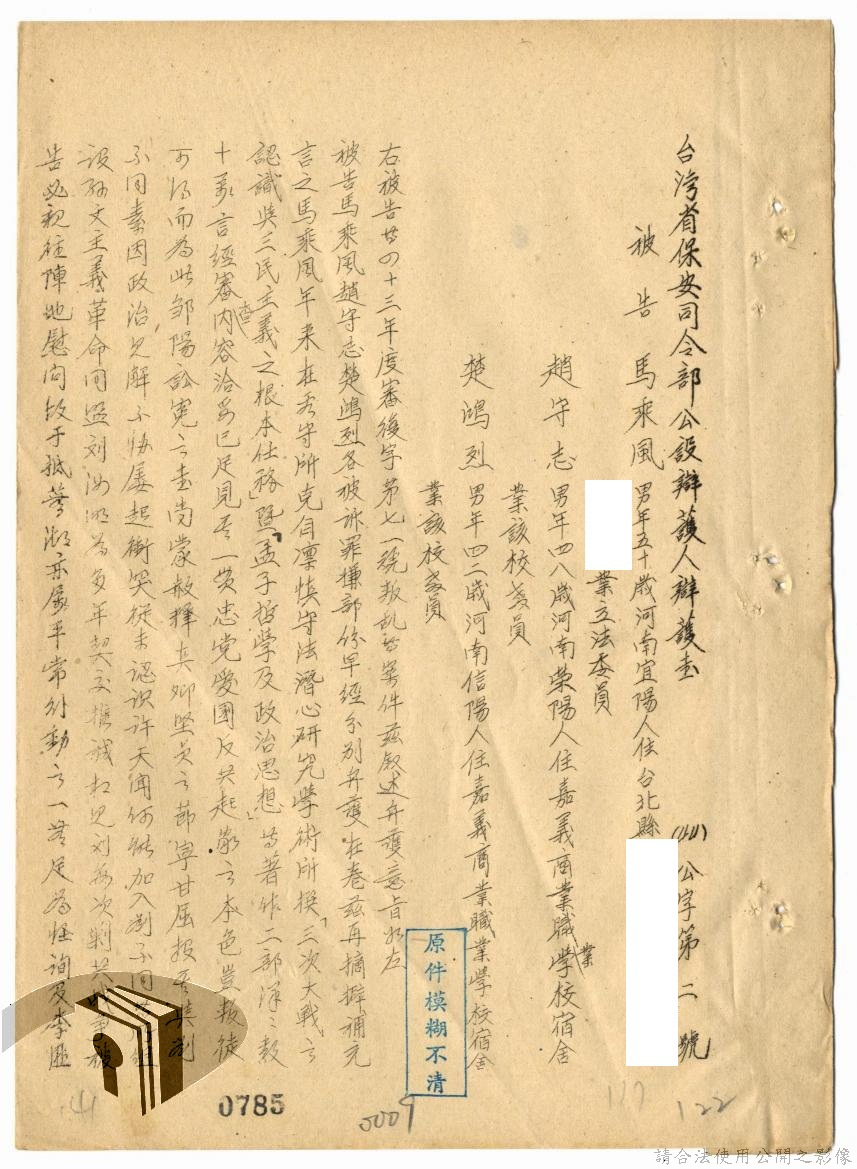 台灣省保安司令部公設辯護人辯護書
(44)公字第二號
被告 馬乘風 男年五十歲河南宜陽人住台北縣
業立法委員
趙守志 男年四八歲河南榮陽人住嘉義商業職業學校宿舍
業該校教員
楚鴻烈 男年四二歲河南信陽人住嘉義商業職業學校宿舍
業該校教員
右被告等四十三年度審復字第七一號叛乱等案件茲叙述弁護意旨如左
被告馬乘風趙守志楚鴻烈各被訴罪嫌部份早經分别弁護在卷茲再摘擗補充
言之馬乘風年来在看守所克自凛慎守法潛心研究學術所撰「三次大戰之
認識與三民主義之根本任務」暨「孟子哲學及政治思想」等著作二部洋之数
十萬言經審查内容洽妥已足見其一贯忠党愛國反共起家之本色豈叛徒
可得而為此鄒陽訟寃之書尚蒙赦擇真卿坚贞之節寧甘屈投其與劉
不同素因政治見解不协屡起衝突從未認识许天闻何能加入劉不同
设孙文主義革命同盟刘汝明為多年契交推誠相见刘每次剿共战事被
告必親往陣地慰问故于抵蕪湖亦属平常行動之一無足為怪詢及李匪
原件模糊不清
0785
0009
141
127
122
請合法使用公開之影像